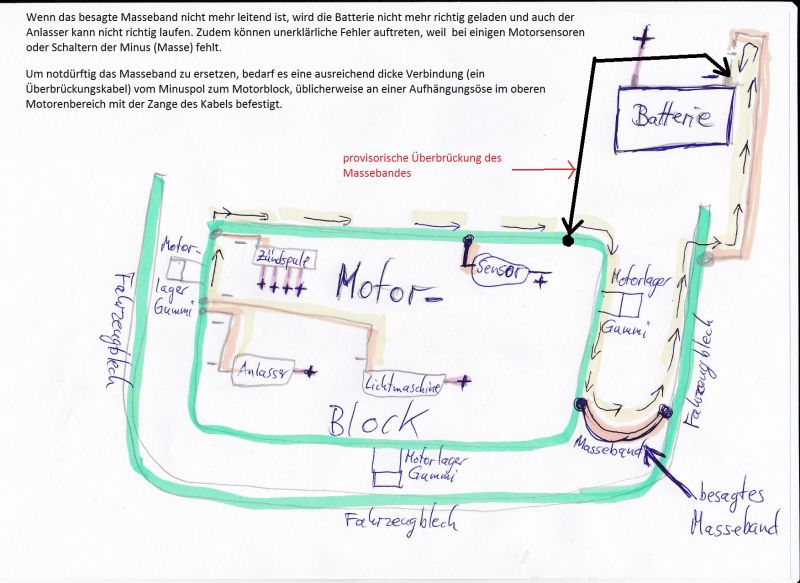 Wenn das besagte Masseband nicht mehr leitend ist, wird die Batterie nicht mehr richtig geladen und auch der
Anlasser kann nicht richtig laufen. Zudem können unerklärliche Fehler auftreten, weil  bei einigen Motorsensoren
oder Schaltern der Minus (Masse) fehlt.
Um notdürftig das Masseband zu ersetzen, bedarf es eine ausreichend dicke Verbindung (ein
Überbrückungskabel) vom Minuspol zum Motorblock, üblicherweise an einer Aufhängungsöse im oberen
Motorenbereich mit der Zange des Kabels befestigt.
+
-
Batterie
provisorische Überbrückung des
Massebandes
Motor-
lager
Gummi
Zündspule
++++
Motor-
Sensor
+
Motorlager
Gummi
Fahrzeugblech
Anlasser
+
Lichtmaschine
+
Fahrzeugblech
Block
Masseband
Motorlager
Gummi
besagtes
Masseband
Fahrzeugblech